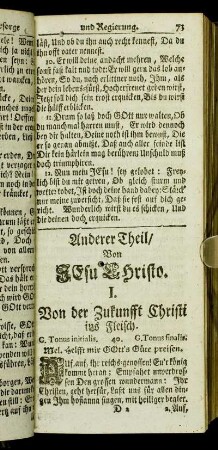 und Regierung. 73
läßt, Und ob du ihn auch recht kennest, Da du
ihn offt vater nennest.
10. Er will deine andacht mehren, Welche
sonst fast kalt und todt: Er will gern das lob an-
hören, So du, nach erlittner noth, Ihm, als
der dein lebens-fürst, Hocherfreuet geben wirst.
Jetzt soll dich sein trost erquicken, Bis du wirst
die hülff erblicken.
11. Drum so laß doch GOtt nur walten, Ob
du manchmal harren must, Er wird dennoch
ob dir halten, Deine noth ist ihm bewust, Die
er so genau abmißt, Daß auch aller feinde list
Dir kein härlein mag berühren: Unschuld muß
doch triumphiren.
12. Nun mein JEsu! sey gelobet: Freu-
lich bist du mit getreu, Ob gleich sturm und
wetter tobet, Ist doch deine hand dabey: Stärck
nur meine zuversicht, Daß sie fest auf dich ge-
richt. Wunderlich wirst du es schicken, Und
die deinen doch erquicken.
Anderer Theil/
Von
JEsu CHristo.
I.
Von der Zukunfft Christi
ins Fleisch.
C. Tonus initialis. 40. G. Tonus finalis.
Mel. Helfft mir GOtt's Güte preisen.
Auf, auf, ihr reichs-genossen! Eu'r König
kommt heran; Empfahet unverdros-
sen Den grossen wundermann: Ihr
Christen, geht herfür, Laßt uns für allen din-
gen Ihm hosianna singen, mit heiliger begier.
D 2 2. Auf,